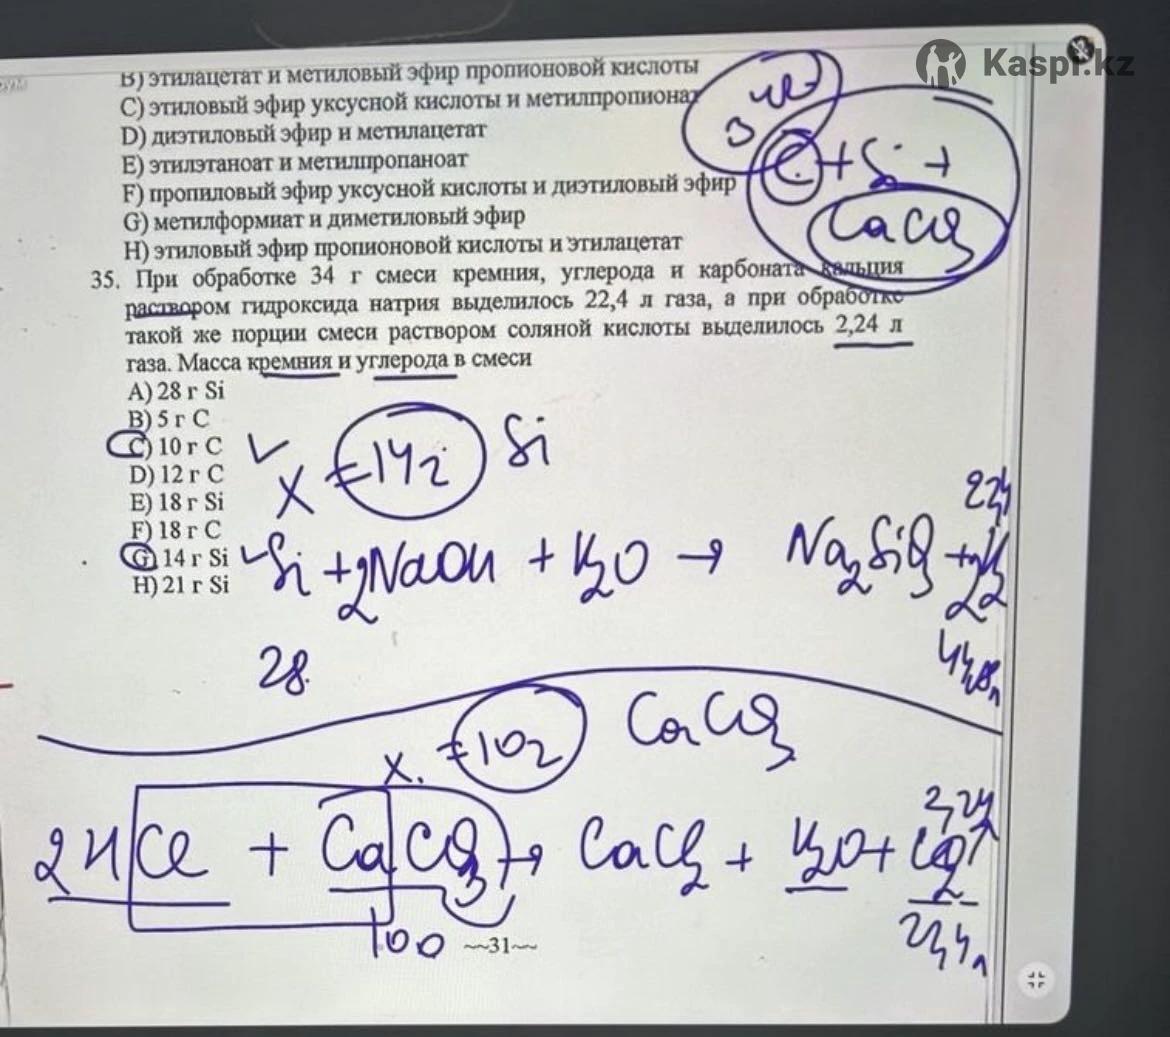 Kaspi.kz
B) этилацетат и метиловый эфир пропионовой кислоты
C) этиловый эфир уксусной кислоты и метилпропионат
D) диэтиловый эфир и метилацетат
E) этилэтаноат и метилпропаноат
F) пропиловый эфир уксусной кислоты и диэтиловый эфир
G) метилформиат и диметиловый эфир
H) этиловый эфир пропионовой кислоты и этилацетат
C + Si +
CaCO3
35. При обработке 34 г смеси кремния, углерода и карбоната кальция
раствором гидроксида натрия выделилось 22,4 л газа, а при обработке
такой же порции смеси раствором соляной кислоты выделилось 2,24 л
газа. Масса кремния и углерода в смеси
A) 28 г Si
B) 5 г C
C) 10 г C
D) 12 г C
E) 18 г Si
F) 18 г C
G) 14 г Si
H) 21 г Si
X = 14г Si
22,4
Si + 2NaOH + H2O → Na2SiO3 + 2H2
28 44,8л
X = 10г CaCO3
2,24
2HCl + CaCO3 → CaCl2 + H2O + CO2↑
100 22,4л
~~31~~